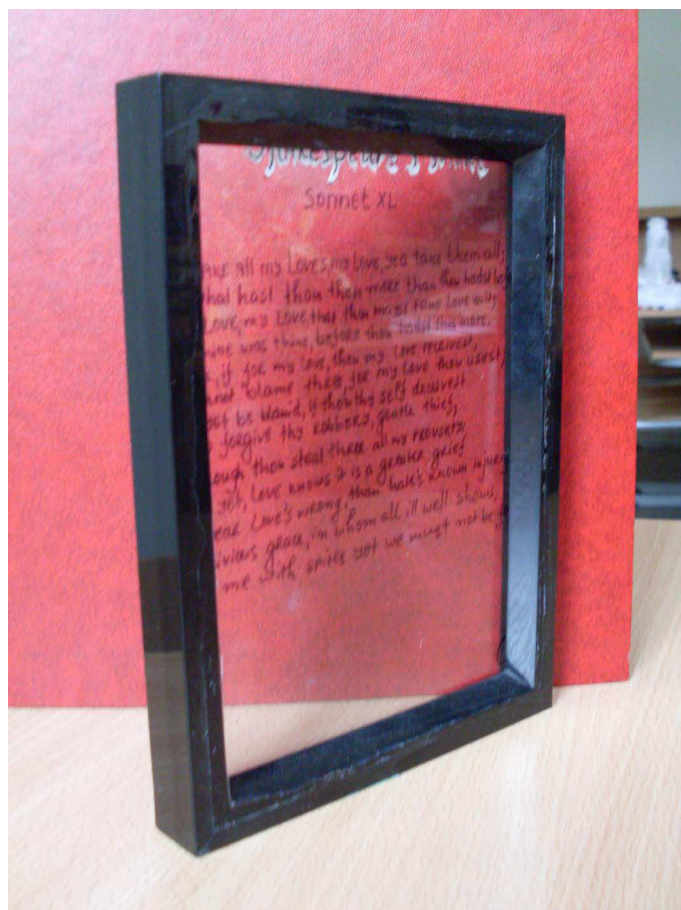 Shakespeare's Sonnet
Sonnet XL
ake all my Loves, my love, yea take them all;
hat hast thou then more than thou hadst befo
Love, my Love that thou mayst true Love call;
ine was thine, before thou hadst this more.
, if for my love, thou my love receivest,
not blame thee, for my love thou usest,
et be blam'd, if thou thy self deceivest
forgive thy robbery, gentle thief,
ough thou steal thee all my poverty:
yet, love knows it is a greater grief
ear Love's wrong, than hate's known injury
ivious grace, in whom all ill well shows,
me with spites yet we must not be